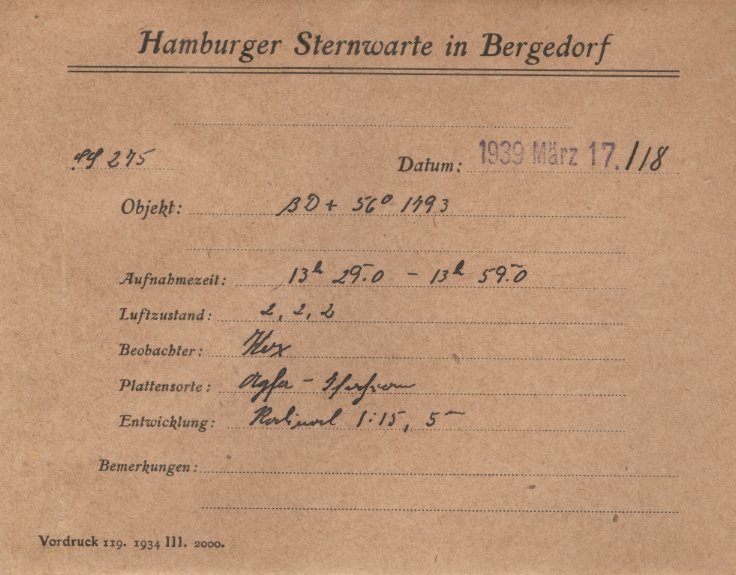 Hamburger Sternwarte in Bergedorf
275
Datum: 1939 März 17./18
Objekt: BD + 56° 1493
Aufnahmezeit: 13h 29m.0 – 13h 59m.0
Luftzustand: 2, 2, 2
Beobachter:
Plattensorte: Agfa –
Entwicklung: Rodinal 1:15, 5m
Bemerkungen:
Vordruck 119. 1934 III. 2000.